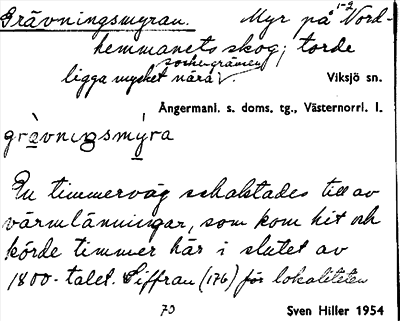 Grävningsmyran. Myr på 1-2 Nord-
hemmanets skog; torde
ligga mycket nära sockengränsen.
Viksjö sn.
Ångermanl. s. doms. tg., Västernorrl. l.
grävningsmýra
En timmerväg schaktades till av
värmlänningar, som kom hit och
körde timmer här i slutet av
1800-talet. Siffran (176) för lokaliteten
70
Sven Hiller 1954